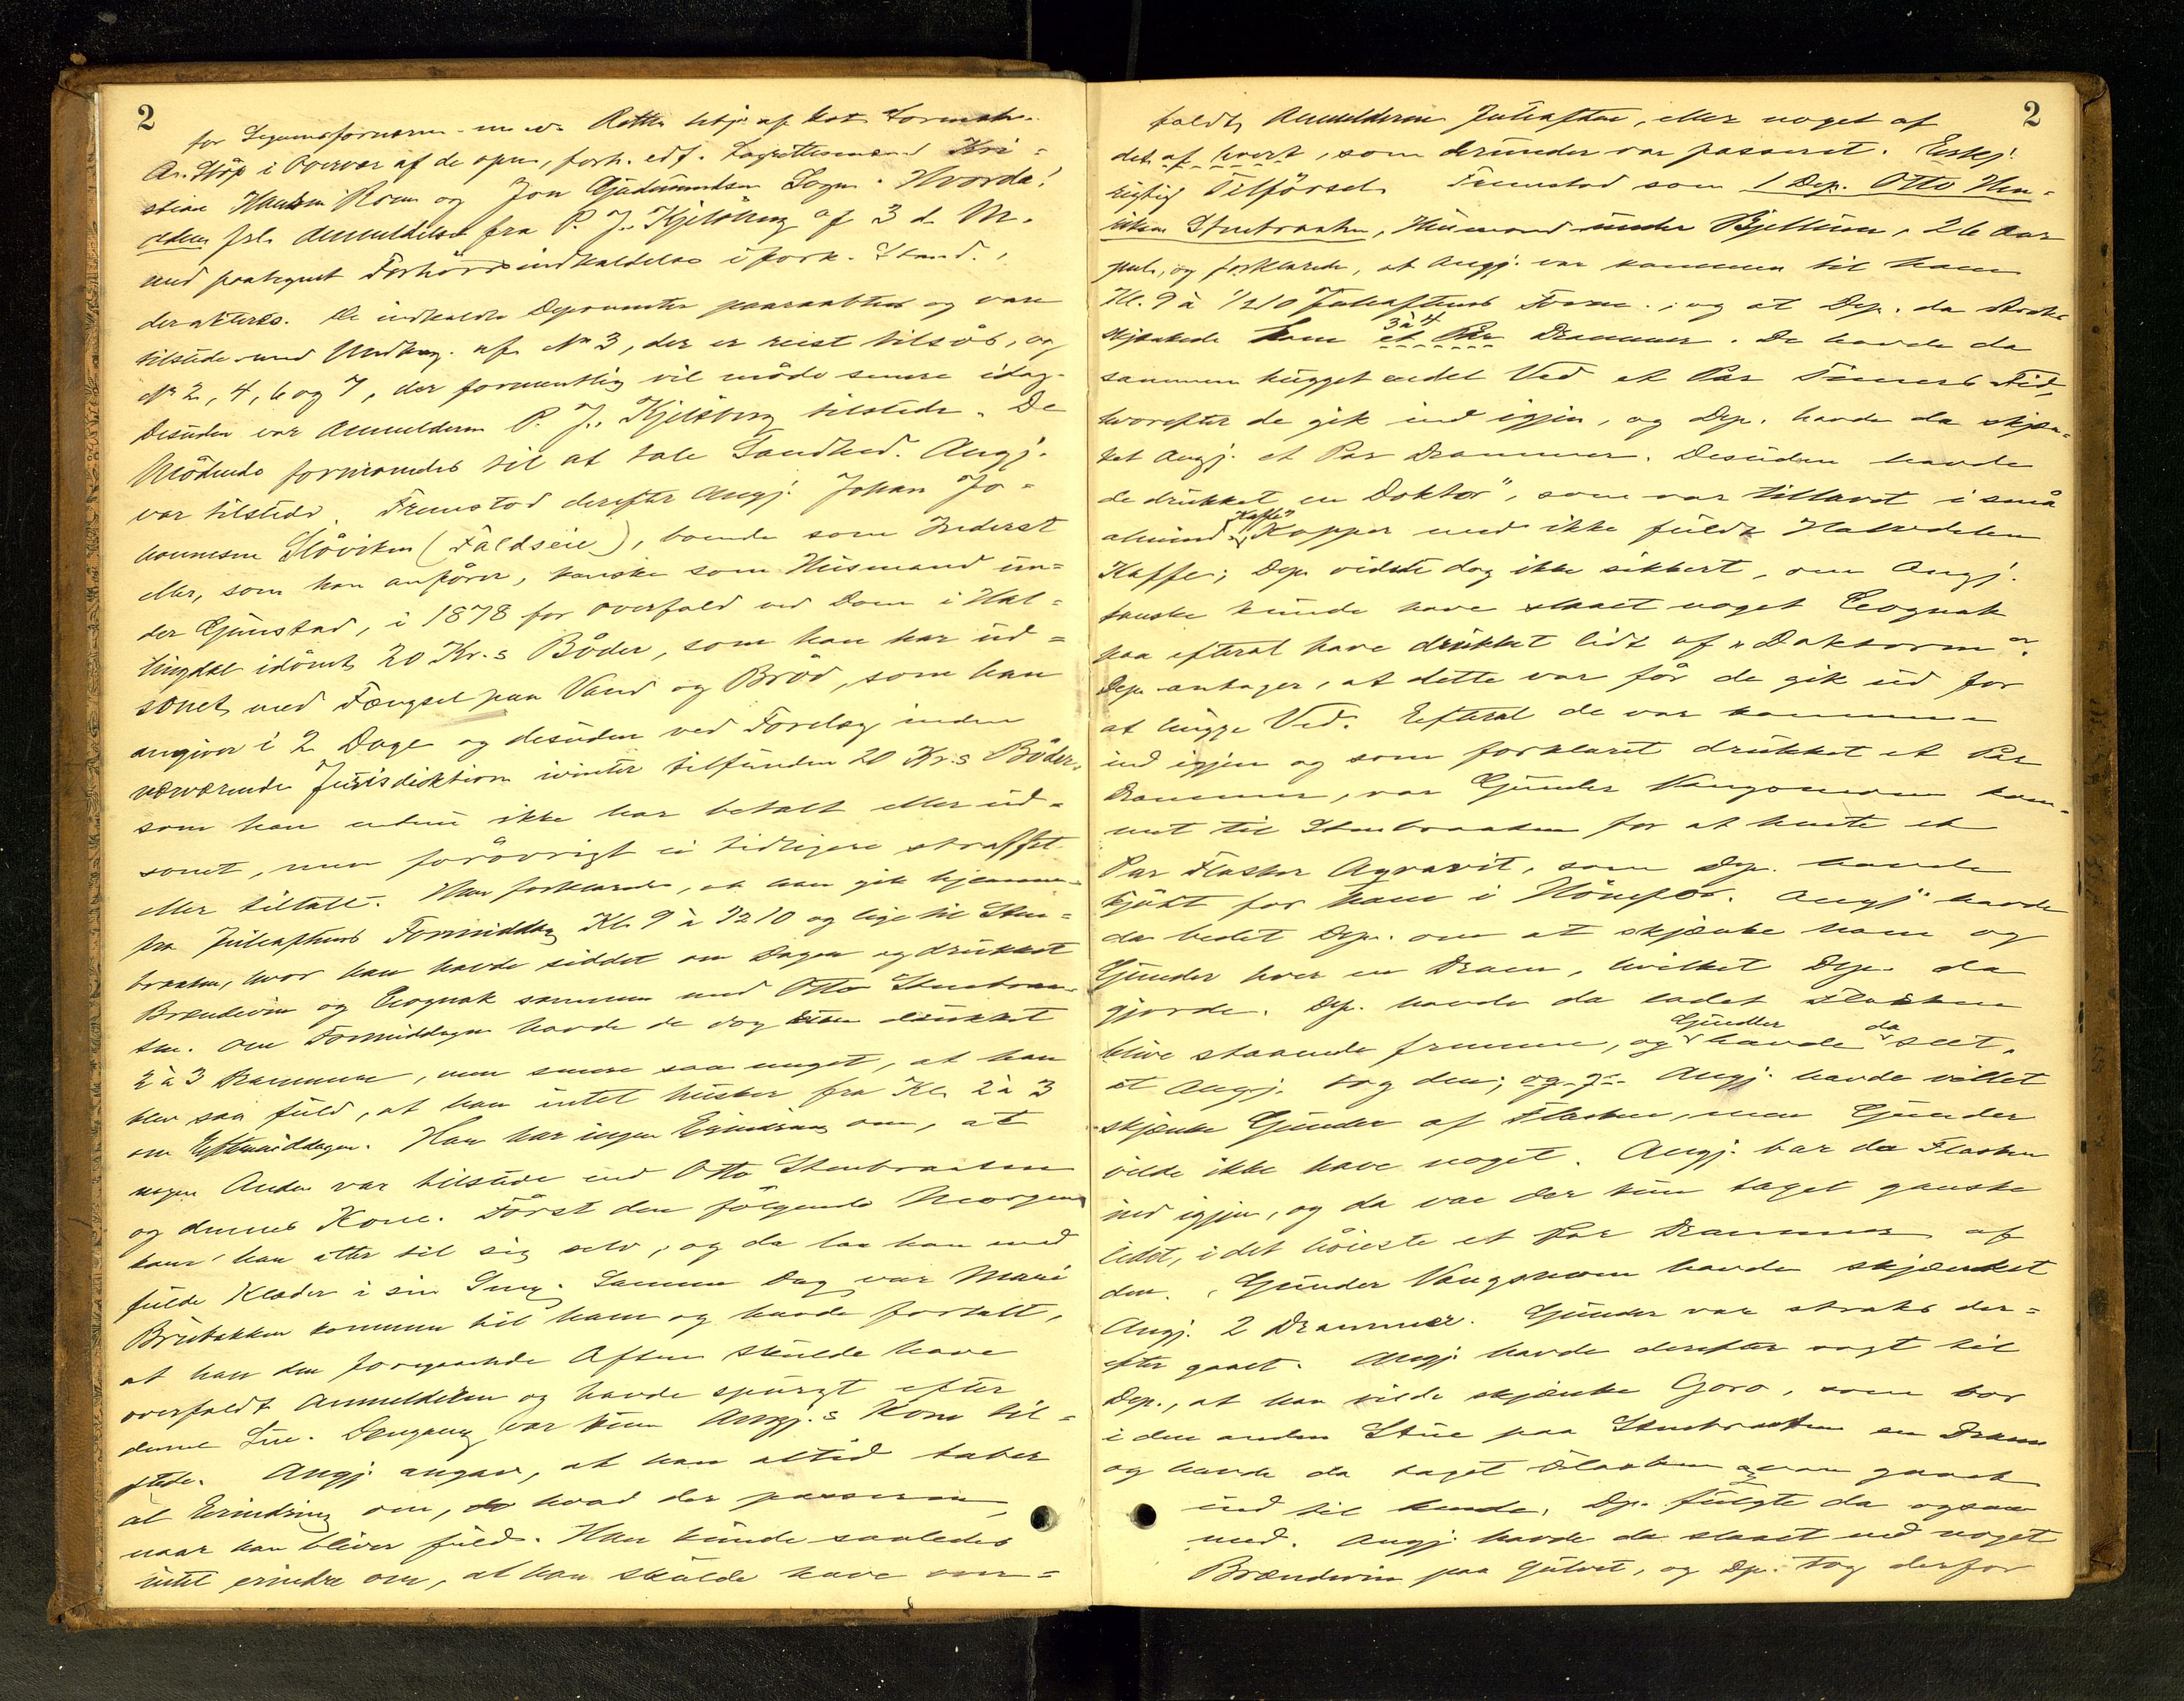 2
for Retten betj. af kst.
An. Höp i Overvær af de opn., forh. edf. Lagrettesmænd Kri=
stian Hansen Roum og Jon Gudmundsen Sogn. Hvorda!
Anmeldelse fra P. J. Kjelsberg af 3 d. M.
med paategnet Forhörsindkaldelse i fork. Stand.,
der akteres. De indkaldte Deponenter paaraabtes og vare
tilstede med Undtag. af No 3, der er reist tilsøs, og
No 2, 4, 6 og 7, der formentlig vil möde senere idag.
Desuden var Anmelderen P. J. Kjelsberg tilstede. De
Mödende formanedes til at tale Sandhed. Angj.
var tilstede. Fremstod derefter Angj. Johan Jo=
hannesen Slåviken (Faldseie), boende som Inderst
eller, som han anförer, kanske som Husmand un=
der Gunstad, i 1878 for Overfald ved Dom i Hal=
lingdal idömt 20 Kr.s Böder, som han har ud=
sonet med Fængsel paa Vand og Bröd, som han
angiver i 2 Dage og desuden ved Forelæg inden
nærværende Jurisdiktion ivinter tilfunden 20 Kr.s Böder,
som han endnu ikke har betalt eller ud=
sonet, men forövrigt ei tidligere straffet
eller tiltalt. Han forklarede, at han gik hjemme=
fra Juleaftens Formiddag Kl. 9 à 1/2 10 og lige til Stu=
braaten, hvor han havde siddet om Dagen og drukket
Brændevin og Cognak sammen med Otto Stubraa=
ten. Om Formiddagen havde de dog drukket
2 à 3 Drammer, men senere saa meget, at han
blev saa fuld, at han intet husker fra Kl. 2 à 3
om Eftermiddagen. Han har ingen Erindring om, at
nogen Anden var tilstede end Otto Stubraaten
og dennes Kone. Först den fölgende Morgen
kom han atter til sig selv, og da laa han med
fulde Klæder i sin Seng. Samme Dag var Mari
Brubakken kommen til ham og havde fortalt,
at han den foregaaende Aften skulde have
overfaldt Anmelderen og havde spurgt efter
denne Lue. Dengang var kun Angj.s Kone til=
stede. Angj. angav, at han altid taber
al Erindring om, hvad der passerer,
naar han bliver fuld. Han kunde saaledes
intet erindre om, at han skulde have over=
2
faldt Anmelderen Juleaften, eller noget af
det af hvert, som derunder var passeret. Erkj.
rigtig Tilförsel. Fremstod som 1 Dep. Otto Hen=
riksen Stubraaten, Husmand under Bjellum, 26 Aar
gml., og forklarede, at Angj. var kommen til ham
Kl. 9 à 1/2 10 Juleaftens Form., og at Dep. da straks
3 à 4
skjænkede ham et Par Drammer. De havde da
sammen hugget endel Ved et Par Timers Tid,
hvorefter de gik ind igjen, og Dep. havde da skjæn=
ket Angj. et Par Drammer. Desuden havde
de drukket en "Doktor", som var tillavet i små
"Kaffe"
almind. Kopper med ikke fuldt Halvdelen
Kaffe; Dep. vidste dog ikke sikkert, om Angj.
kanske kunde have slaaet noget Cognak
paa efterat have drukket lidt af "Doktoren".
Dep. antager, at dette var för de gik ud for
at hugge Ved. Efterat de var kommen
ind igjen og som forklaret drukket et Par
Drammer, var Gunder Vangsmoen kom=
met til Stubraaten for at hente et
Par Flasker Aqvavit, som Dep. havde
kjöbt for ham i Hönefos. Angj. havde
da bedet Dep. om at skjænke ham og
Gunder hver en Dram, hvilket Dep. da
gjorde. Dep. havde da ladet Flasken
Gunder da
blive staaende fremme, og havde seet,
at Angj. tog den, og Angj. havde villet
skjænke Gunder af Flasken, men Gunder
vilde ikke have noget. Angj. bar da Flasken
ind igjen, og da var der kun taget ganske
lidet, i det höieste et Par Drammer af
den. Gunder Vangsmoen havde skjænket
Angj. 2 Drammer. Gunder var straks der=
efter gaaet. Angj. havde derefter sagt til
Dep., at han vilde skjænke Goro, som bor
i den anden Stue paa Stubraaten en Dram
og havde da taget Flasken og var gaaet
ind til hende. Dep. fulgte da ogsaa
med. Angj. havde da slaaet ned noget
Brændevin paa Gulvet, og Dep. tog derfor